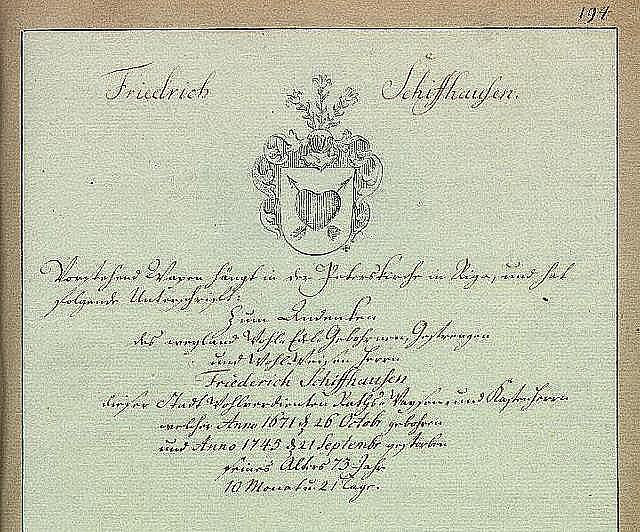 194
Friedrich Schiffhausen.
Vorstehend Wapen hängt in der Peterskirche in Riga, und hat
folgende Unterschrift:
Zum Andenken
des weyland Wohl Edl Gebohrnen, Gestrengen
und Wohl Weisen Herrn
Friederich Schiffhausen
dieser Stadt Wohlverdienten Raths Waysen und Kastenherrn
welcher Anno 1671 d 26 Octobr gebohren
und Anno 1745 d 21 Septembr gestorben
seines Alters 73 Jahr
10 Monat u 21 Tage.